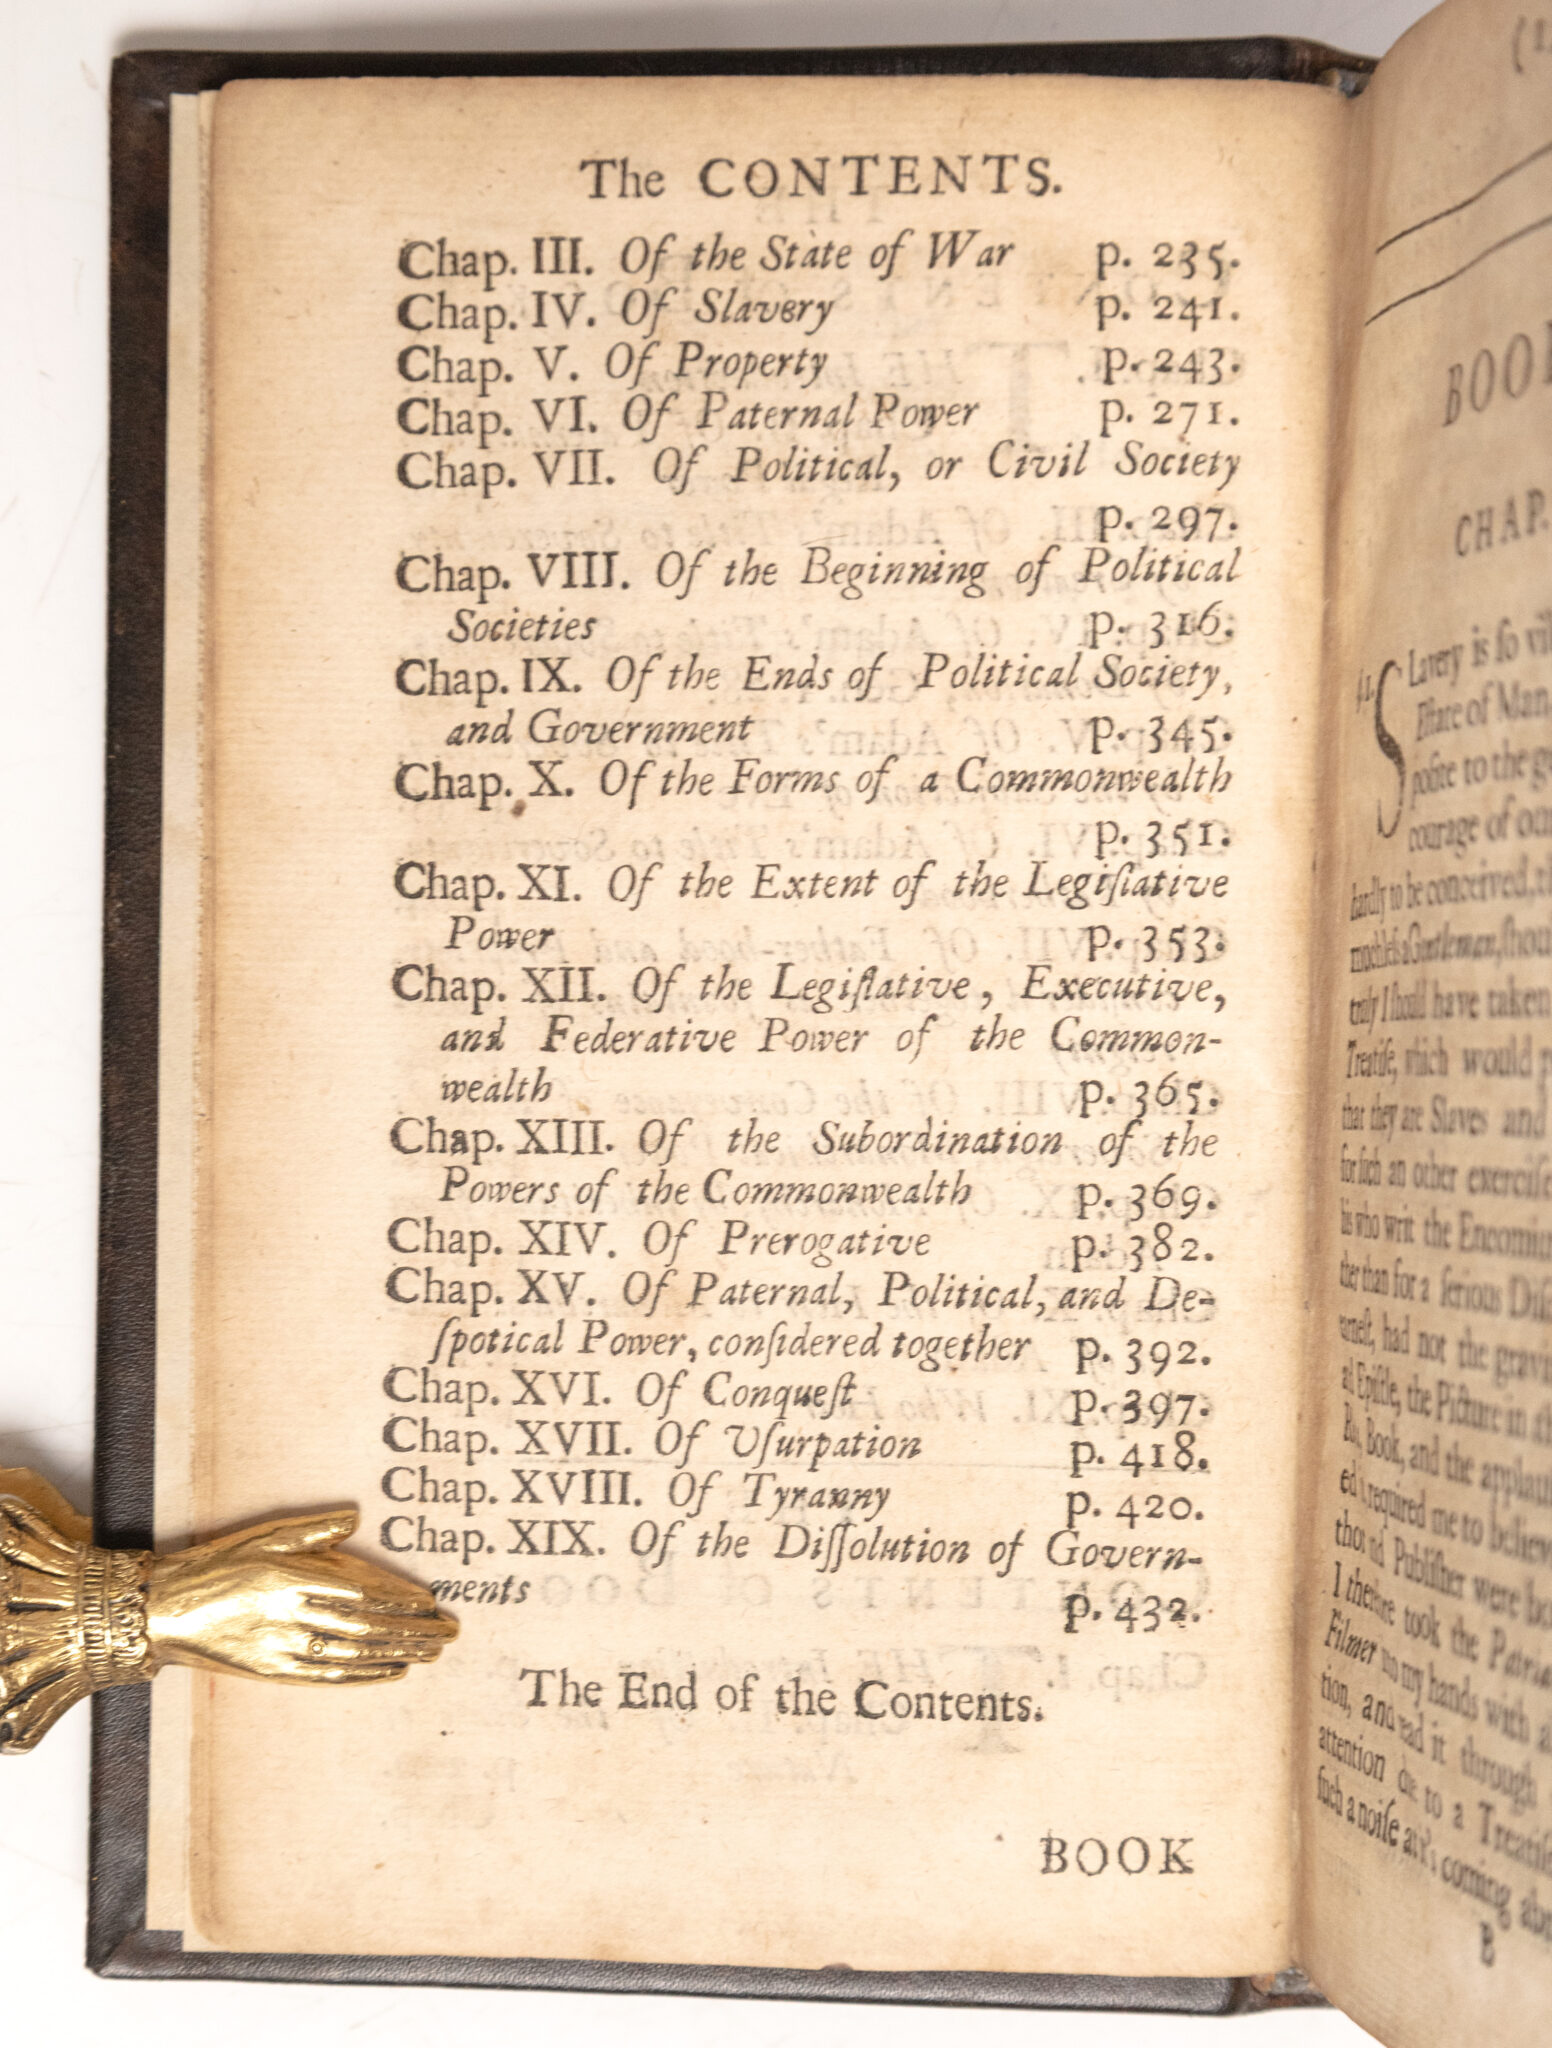 The CONTENTS.
Chap. III. Of the State of War p. 235.
Chap. IV. Of Slavery p. 241.
Chap. V. Of Property p. 243.
Chap. VI. Of Paternal Power p. 271.
Chap. VII. Of Political, or Civil Society
p. 297.
Chap. VIII. Of the Beginning of Political
Societies p. 316.
Chap. IX. Of the Ends of Political Society,
and Government p. 345.
Chap. X. Of the Forms of a Commonwealth
p. 351.
Chap. XI. Of the Extent of the Legiſlative
Power p. 353.
Chap. XII. Of the Legiſlative, Executive,
and Federative Power of the Common-
wealth p. 365.
Chap. XIII. Of the Subordination of the
Powers of the Commonwealth p. 369.
Chap. XIV. Of Prerogative p. 382.
Chap. XV. Of Paternal, Political, and De-
ſpotical Power, conſidered together p. 392.
Chap. XVI. Of Conqueſt p. 397.
Chap. XVII. Of Uſurpation p. 418.
Chap. XVIII. Of Tyranny p. 420.
Chap. XIX. Of the Diſſolution of Govern-
ments p. 432.
The End of the Contents.
BOOK
BOOK
CHAP.
Slavery is ſo
Eſtate of Man
poſite to the
courage of
hardly to be conceived,
Gentleman,
truly I ſhould have taken
Treatiſe, which would
that they are Slaves and
for ſuch an other exerciſe
his who writ the
ther than for a ſerious
had not the
Epiſtle, the Picture in
Book, and the
required me to
Publiſher were
I therefore took the
Filmer my hands with
tion, and read it through
attention to a
ſuch a noiſe coming
B